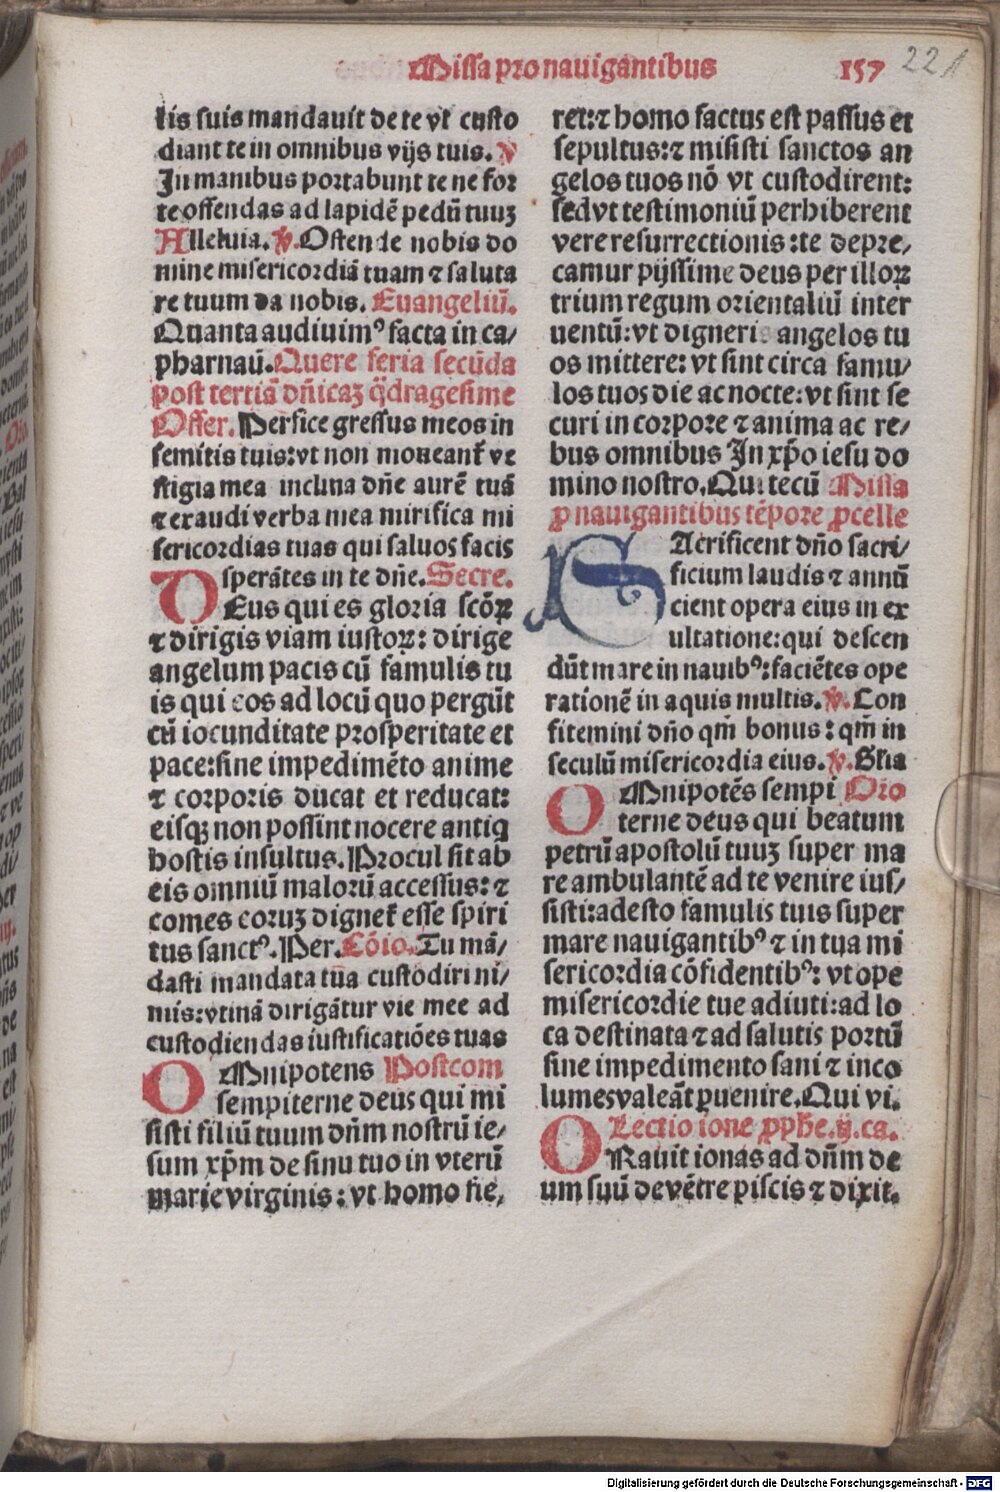 Missa pro nauigantibus 157 221
lis suis mandauit de te vt custo
diant te in omnibus vijs tuis. ℣
In manibus portabunt te ne for
te offendas ad lapidē pedū tuuꝫ
Alleluia. ℣. Ostende nobis do
mine misericordiā tuam ⁊ saluta
re tuum da nobis. Euangeliū.
Quanta audiuimꝰ facta in ca/
pharnaū. Quere feria secūda
post tertiā dn̄icaꝫ q̄dragesime
Offer. Perfice gressus meos in
semitis tuis: vt non moueant᷒ ve
stigia mea inclina dn̄e aurē tuā
⁊ exaudi verba mea mirifica mi
sericordias tuas qui saluos facis
sperātes in te dn̄e. Secre.
DEus qui es gloria sctōꝝ
⁊ dirigis viam iustoꝝ: dirige
angelum pacis cū famulis tu
is qui eos ad locū quo pergūt
cū iocunditate prosperitate et
pace: sine impedimēto anime
⁊ corporis ducat et reducat:
eisqꝫ non possint nocere antiq
hostis insultus. Procul sit ab
eis omniū malorū accessus: ⁊
comes eoruꝫ dignet᷒ esse spiri
tus sanctꝰ. Per. Cōio. Tu mā/
dasti mandata tua custodiri ni/
mis: vtinā dirigātur vie mee ad
custodiendas iustificatiōes tuas
OMnipotens Postcom
sempiterne deus qui mi
sisti filiū tuum dn̄m nostrū ie/
sum xp̄m de sinu tuo in vterū
marie virginis: vt homo fie/
ret: ⁊ homo factus est passus et
sepultus: ⁊ misisti sanctos an
gelos tuos nō vt custodirent:
sed vt testimoniū perhiberent
vere resurrectionis: te depre/
camur pijssime deus per illoꝝ
trium regum orientaliū inter
uentū: vt digneris angelos tu
os mittere: vt sint circa famu/
los tuos die ac nocte: vt sint se
curi in corpore ⁊ anima ac re/
bus omnibus In xp̄o iesu do
mino nostro. Qui tecū Missa
ꝓ nauigantibus tēpore ꝓcelle
SAcrificent dn̄o sacri/
ficium laudis ⁊ annū
cient opera eius in ex
ultatione: qui descen
dūt mare in nauibꝰ: faciētes ope
rationē in aquis multis. ℣. Con
fitemini dn̄o qm̄ bonus: qm̄ in
seculū misericordia eius. ℣. Gl'ia
OMnipotēs sempi Oro
terne deus qui beatum
petrū apostolū tuuꝫ super ma
re ambulantē ad te venire ius/
sisti: adesto famulis tuis super
mare nauigantibꝰ ⁊ in tua mi
sericordia cōfidentibꝰ: vt ope
misericordie tue adiuti: ad lo
ca destinata ⁊ ad salutis portū
sine impedimento sani ⁊ inco
lumes valeāt ꝑuenire. Qui vi.
Lectio ione ꝓphe. ij. ca.
ORauit ionas ad dn̄m de
um suū de vētre piscis ⁊ dixit.
Digitalisierung gefördert durch die Deutsche Forschungsgemeinschaft - DFG